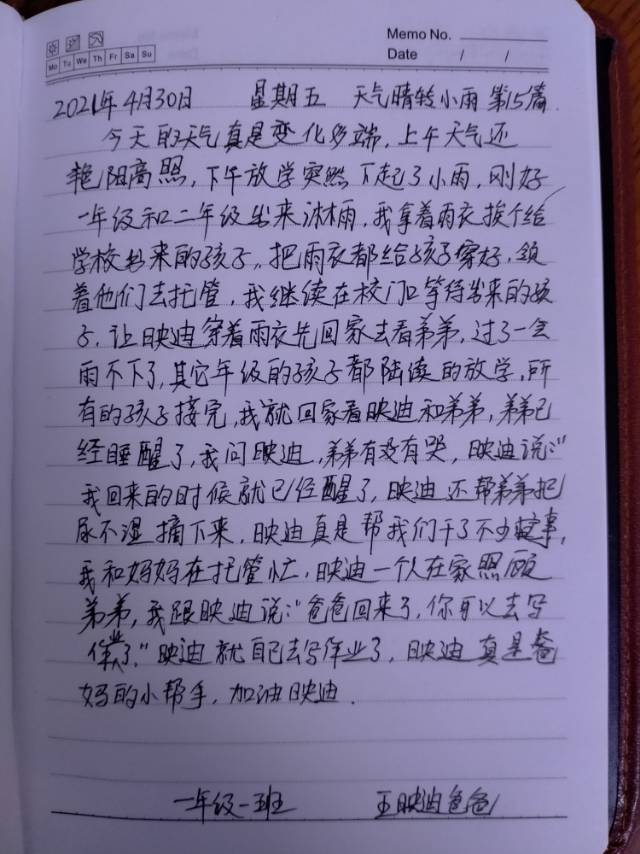 Memo No.
Mo Tu We Th Fr Sa Su
Date / /
2021年4月30日 星期五 天气晴转小雨 第15篇
今天的天气真是变化多端，上午天气还
艳阳高照，下午放学突然下起了小雨，刚好
一年级和二年级出来淋雨，我拿着雨衣挨个给
学校出来的孩子。把雨衣都给孩子穿好，领
着他们去托管，我继续在校门口等待出来的孩
子，让映迪穿着雨衣先回家去看弟弟，过了一会
雨不下了，其它年级的孩子都陆续的放学，所
有的孩子接完，我就回家看映迪和弟弟，弟弟已
经睡醒了，我问映迪，弟弟有没有哭，映迪说：“
我回来的时候就已经醒了，映迪还帮弟弟把
尿不湿摘下来，映迪真是帮我们干了不少事，
我和妈妈在托管忙，映迪一个人在家照顾
弟弟，我跟映迪说：“爸爸回来了，你可以去写
作业了，”映迪就自己去写作业了，映迪真是爸
妈的小帮手，加油映迪.
一年级一班 王映迪爸爸